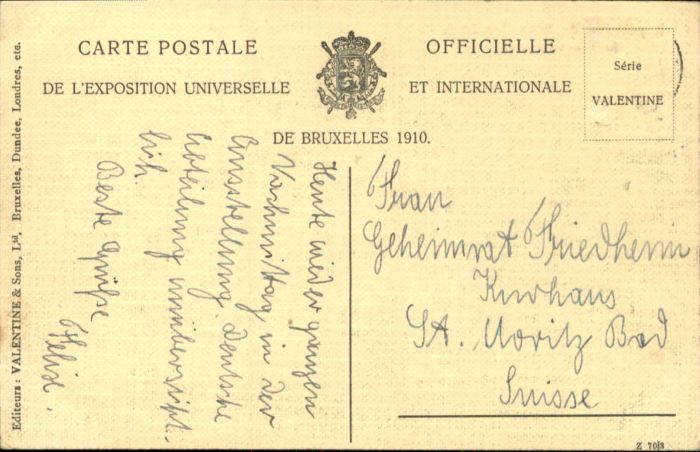 CARTE POSTALE OFFICIELLE
DE L'EXPOSITION UNIVERSELLE ET INTERNATIONALE
DE BRUXELLES 1910.
Série
VALENTINE
Editeurs: VALENTINE & Sons, Ltd, Bruxelles, Dundee, Londres, etc.
Heute wieder ganzen
Vormittag in der
Ausstellung. Deutsche
Abteilung unübertreff-
lich.
Beste Grüße
Felix.
Frau
Geheimrat Friedheim
Kurhaus
St. Moritz Bad
Suisse
Z 70/3